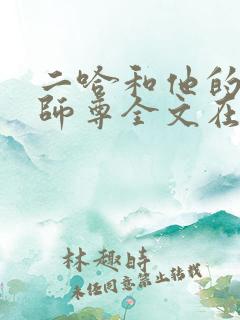 二哈和他的
師尊全文在
林趣時
未经同意禁止转载